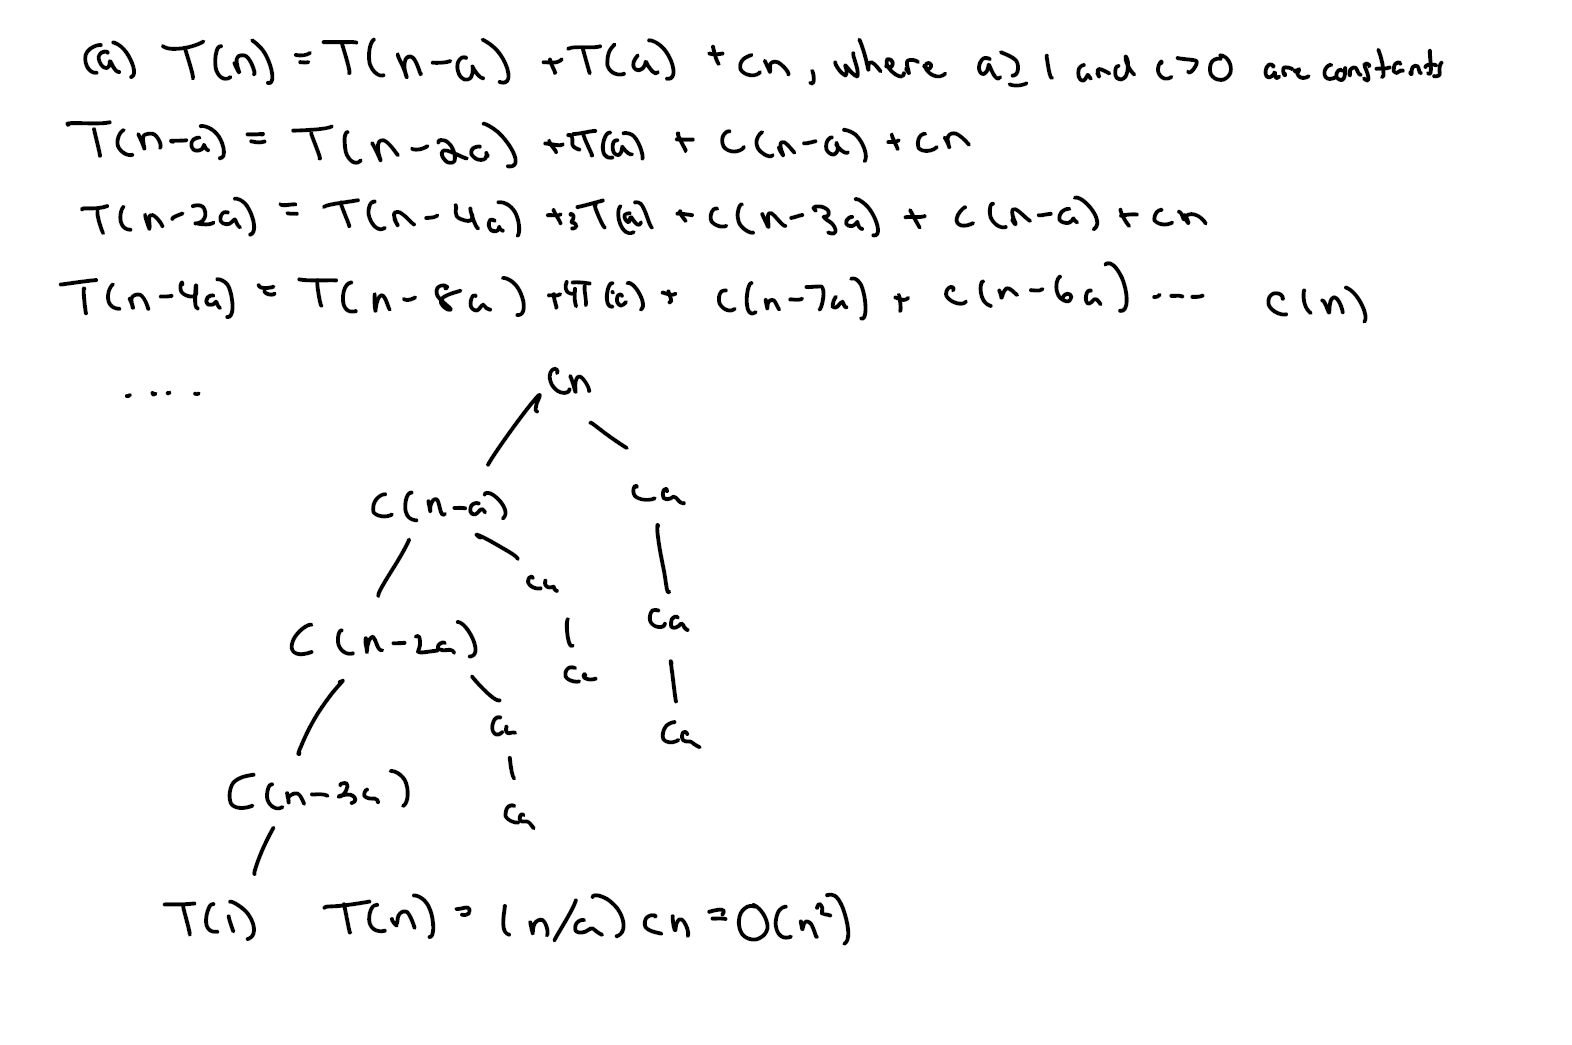 (a) T(n) = T(n-a) + T(a) + cn, where a≥1 and c>0 are constants
T(n-a) = T(n-2a) + T(a) + c(n-a) + cn
T(n-2a) = T(n-4a) +3T(a) + c(n-3a) + c(n-a) + cn
T(n-4a) = T(n-8a) +4T(a) + c(n-7a) + c(n-6a) ... c(n)
....
cn
c(n-a) ca
ca
c(n-2a) ca ca
ca
ca ca
c(n-3a) ca
T(1) T(n) = (n/a) cn = O(n²)